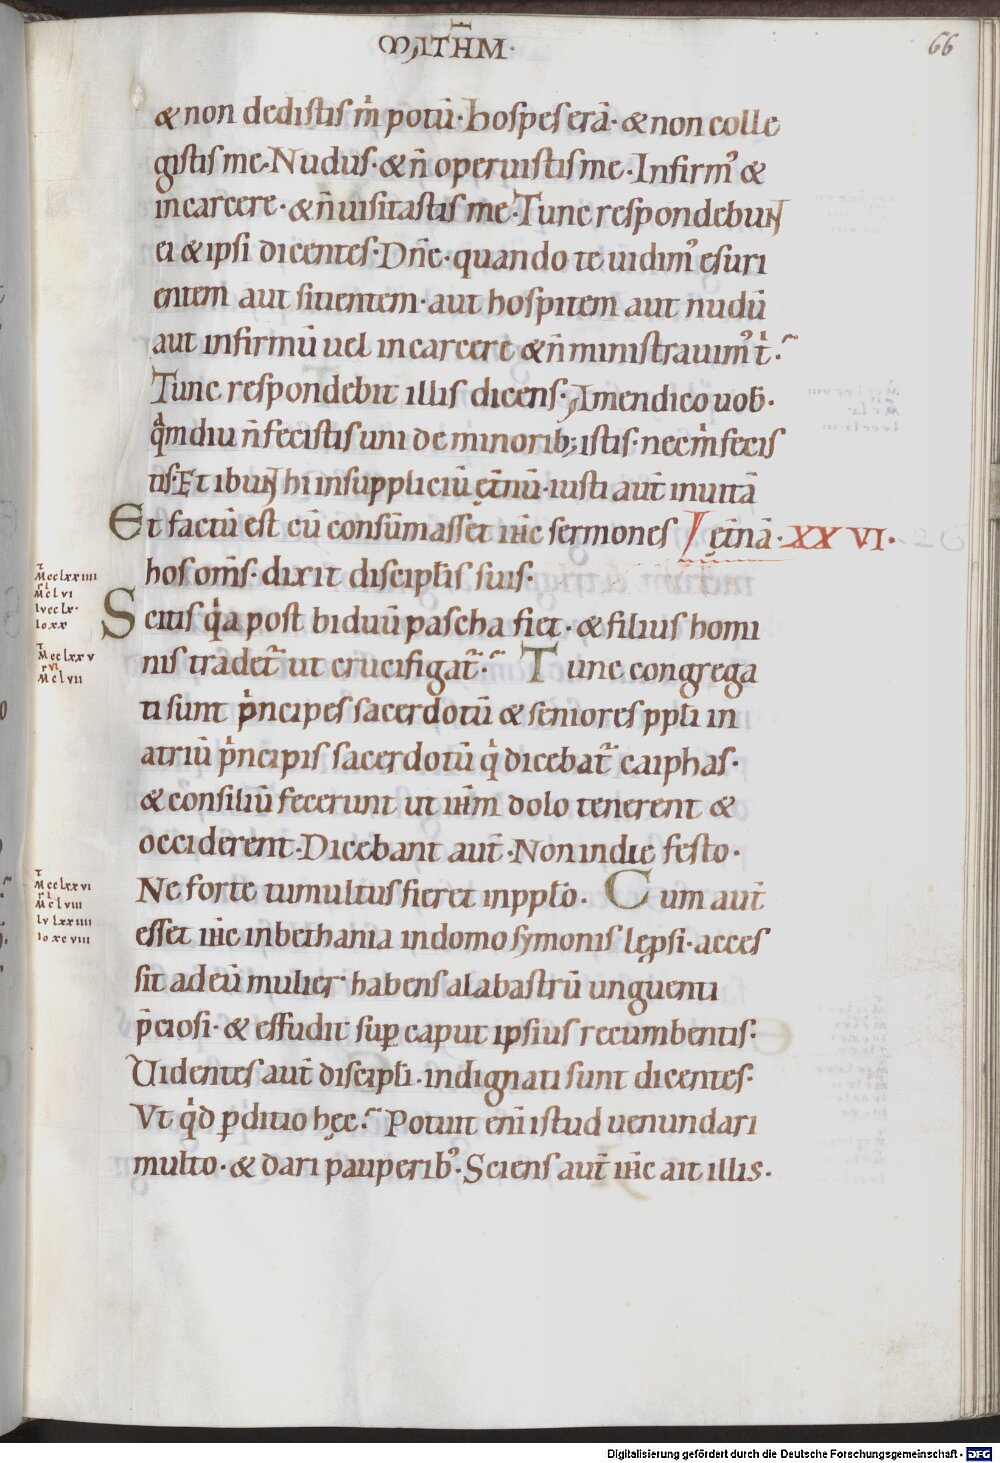 MATHM·
66
& non dedistis m̊ potū· hospes erā· & non colle
gistis me· Nudus· & n̄ operuistis me· Infirm᾽ &
in carcere· & n̄ uisitastis me· Tunc respondebuɴt
ei & ipsi dicentes· Dn̄e· quando te uidim᾽ esuri
entem aut sitientem· aut hospitem aut nudū
aut infirmū uel in carcere & n̄ ministrauim᾽ t̊·
Tunc respondebit illis dicens· Amen dico uob̄·
qͣmdiu n̄ fecistis uni de minorib; istis· nec m̊ fecis
tis· Et ibuɴt hi in suppliciū ęt̄nū· iusti aut̄ in uitā
Et factū est cū consūmasset ih̄c sermones ęt̄nā· XXVI· 26
hos om̄s· dixit discipl̄is suis·
Scitis qͥa post biduū pascha fiet· & filius homi
nis tradet᷑ ut crucifigat᷑· Tunc congrega
ti sunt pͥncipes sacerdotū & seniores ppl̄i in
atriū pͥncipis sacerdotū qͥ dicebat᷑ caiphas·
& consiliū fecerunt ut ih̄m dolo tenerent &
occiderent· Dicebant aut̄· Non in die festo·
Ne forte tumultus fieret in ppl̄o· Cum aut̄
esset ih̄c in bethania in domo symonis lep̱si· acces
sit ad eū mulier habens alabastrū unguenti
p̄ciosi· & effudit sup̱ caput ipsius recumbentis·
Uidentes aut̄ discipl̄i· indignati sunt dicentes·
Vt qͥd p̱ditio hęc· Potuit eni̅ istud uenundari
multo· & dari pauperib᾽· Sciens aut̄ ih̄c ait illis·
T
M cclxxiiii
M clvi
lv cclx·
Io xx
T
M cclxxv
M clvii
T
M cclxxvi
M clviii
lv lxxiiii
Io xcviii
Digitalisierung gefördert durch die Deutsche Forschungsgemeinschaft - DFG